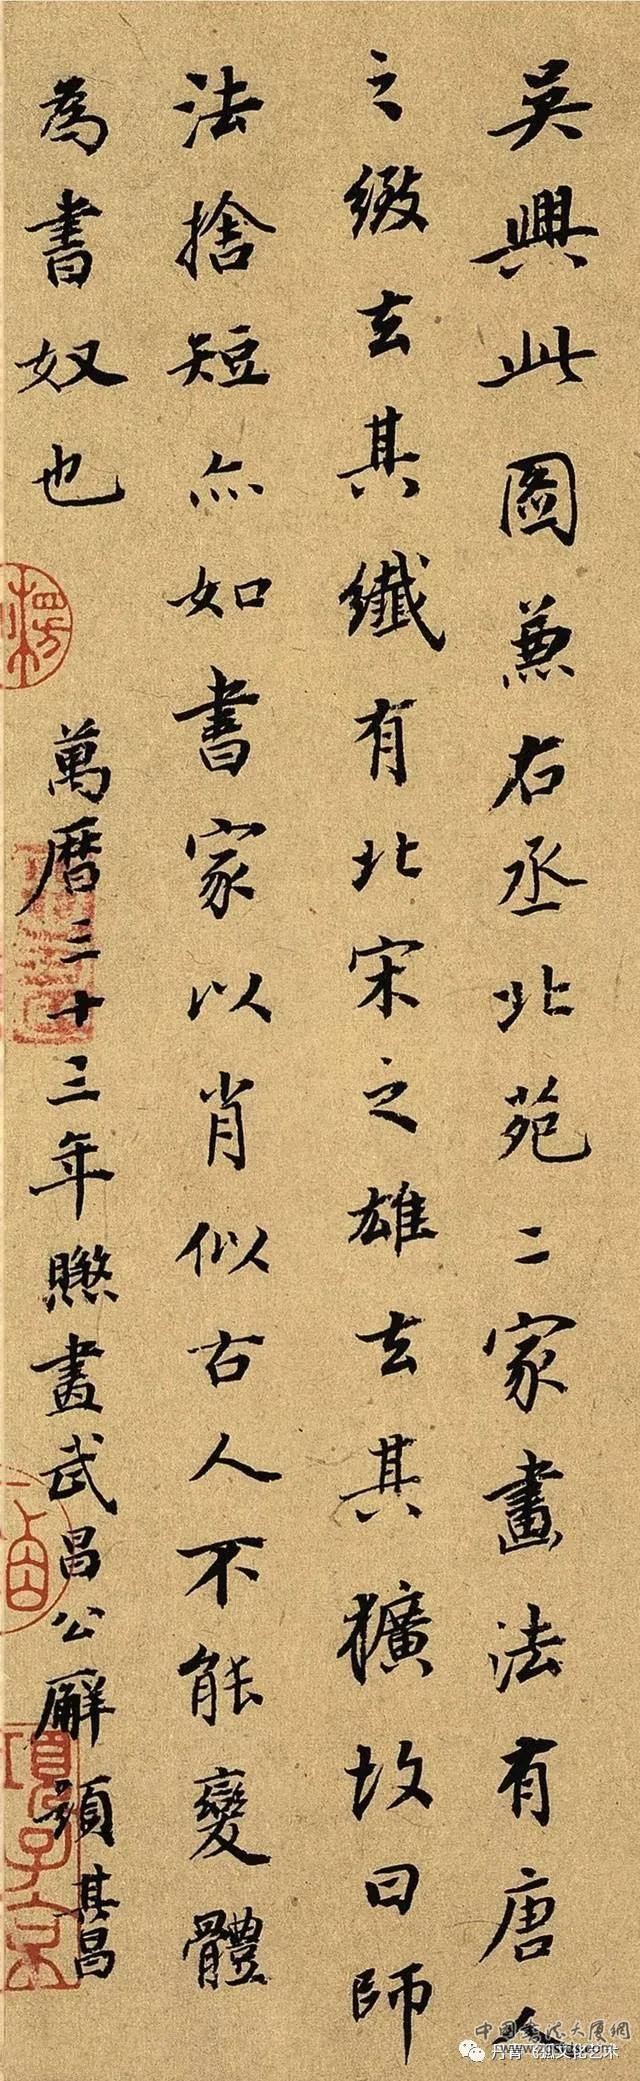 吳興此圖兼右丞北苑二家畫法有唐人
之緻去其纖有北宋之雄去其獷故曰師
法捨短亦如書家以肖似古人不能變體
為書奴也 萬曆三十三年畫武昌公廨題其昌
項子京
中国書法大厦網
www.zgsfds.com
文化艺术